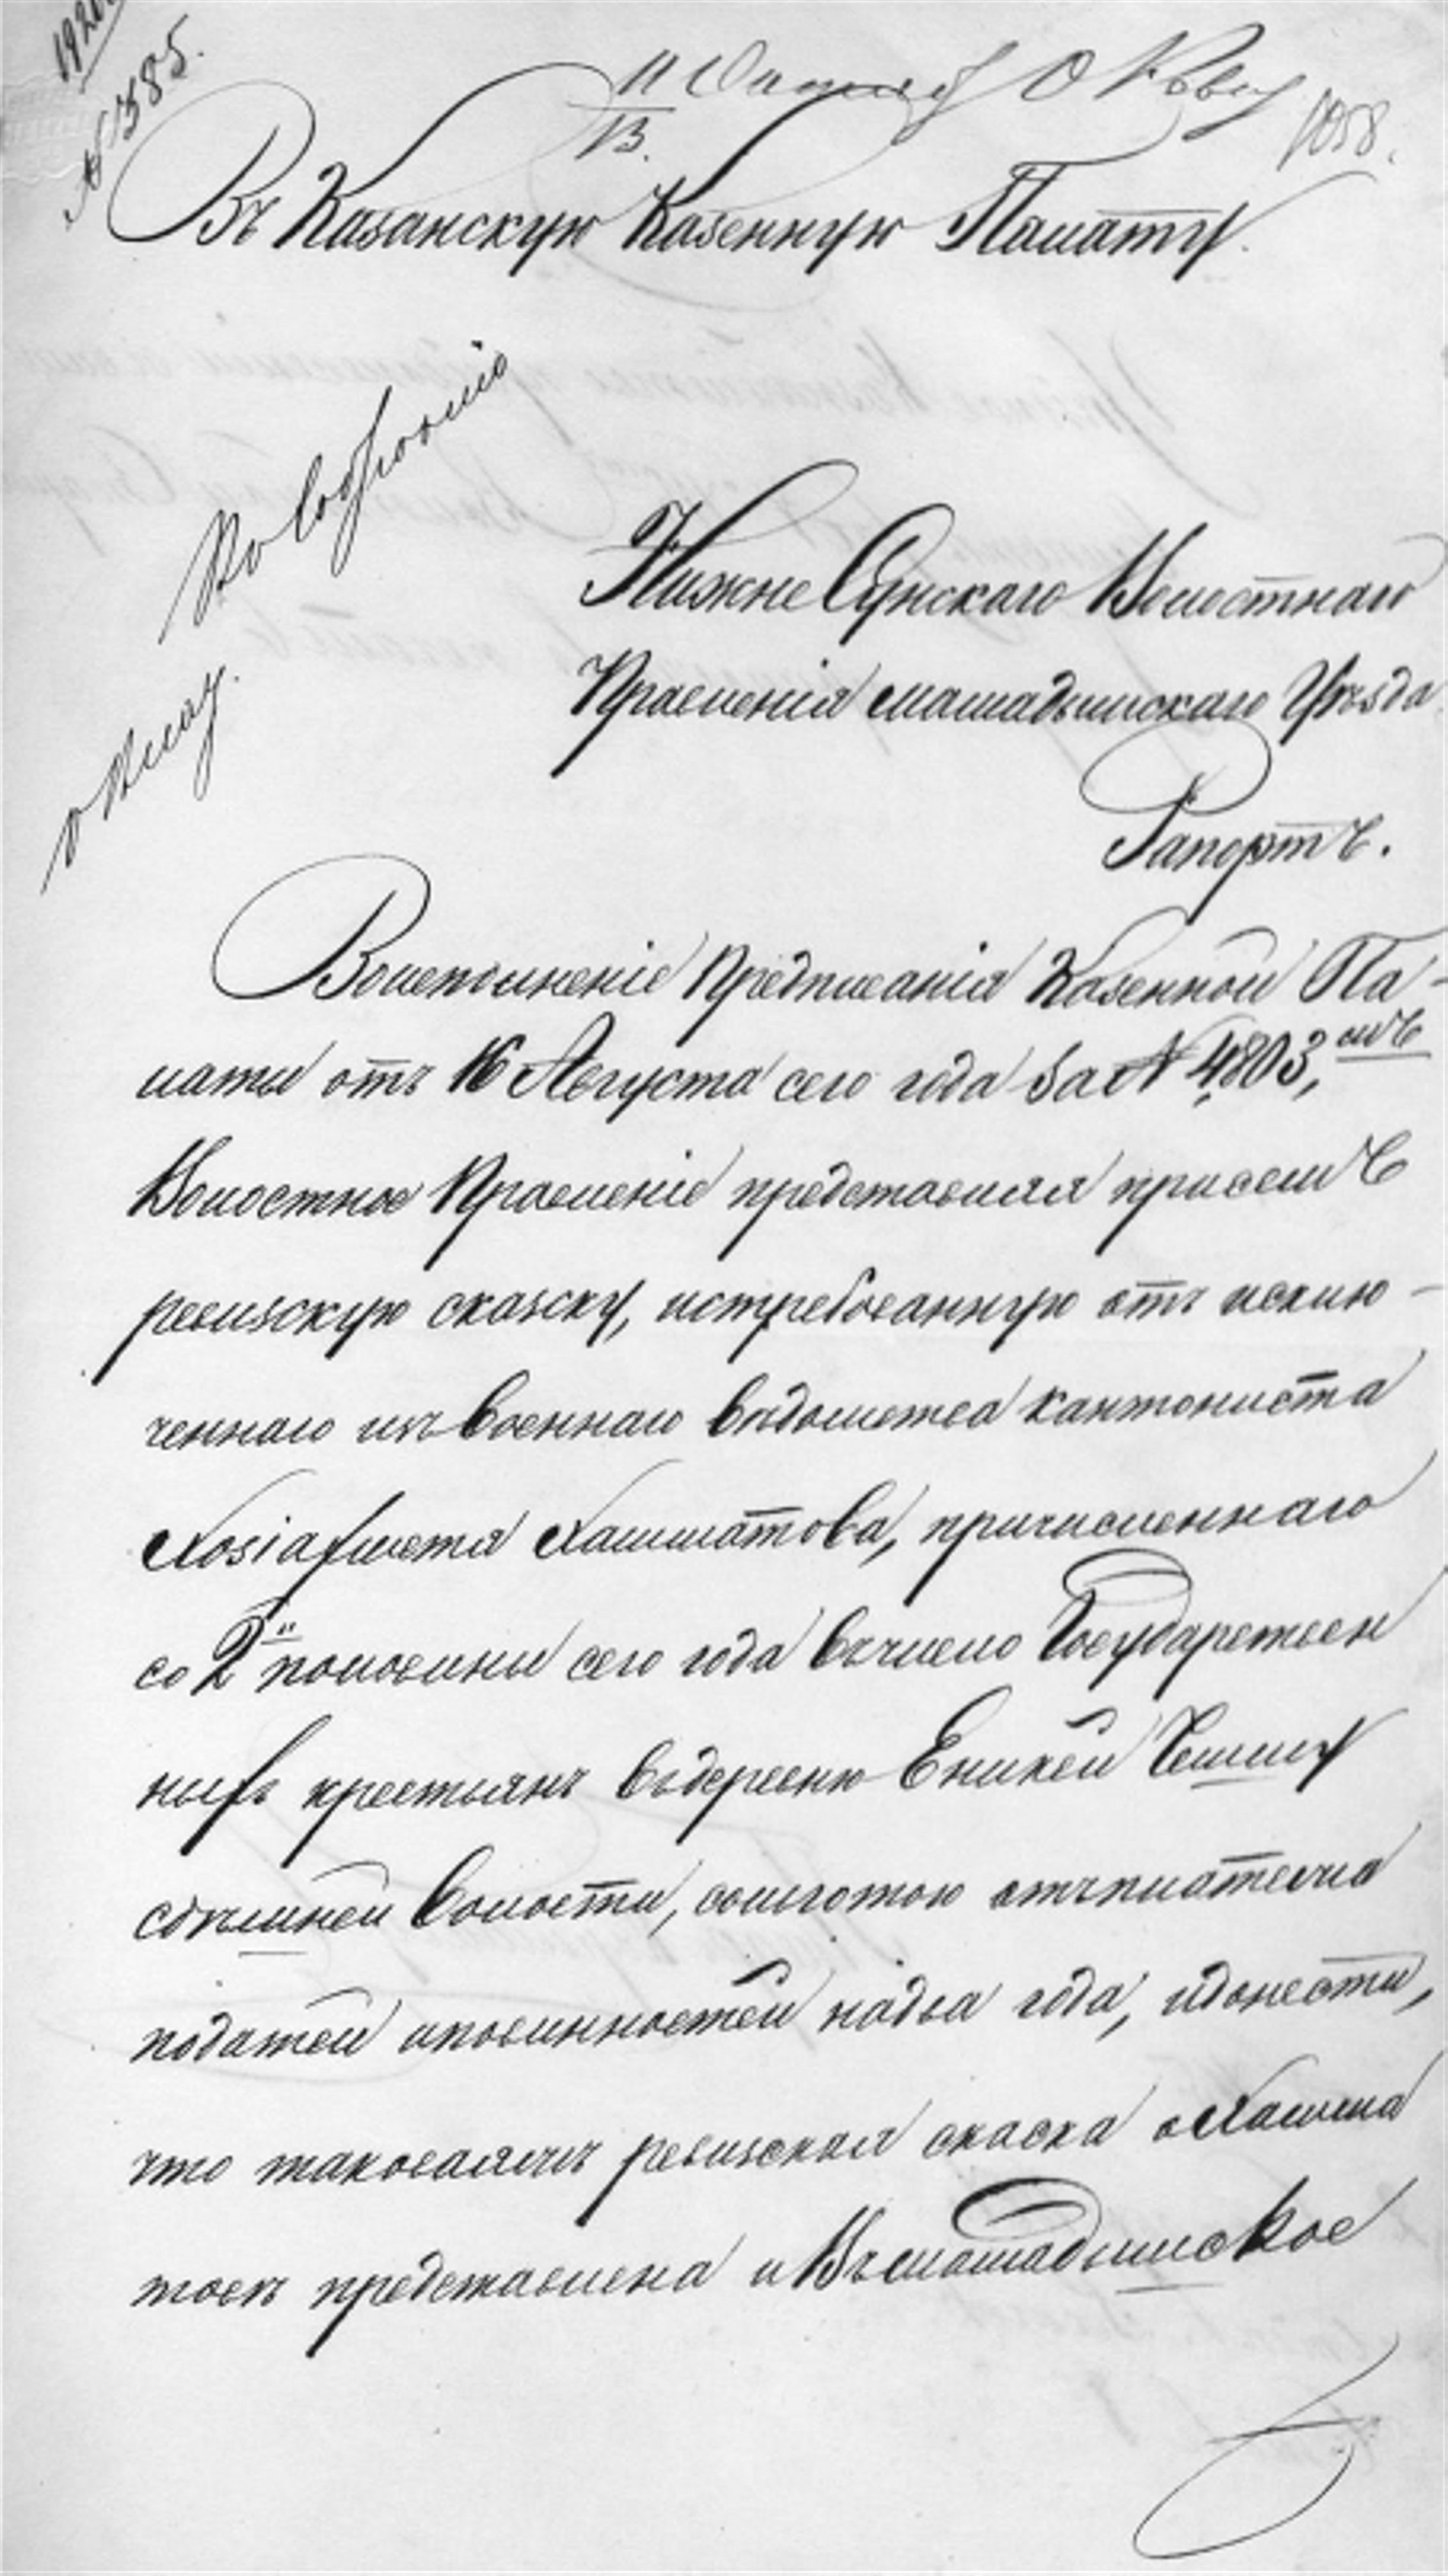 № 1385.
1058.
Въ Казанскую Казенную Палату.
Нижне Сунскаго Волостнаго
Правленія мамадышскаго Уѣзда
Рапортъ.
Воисполненіе Предписанія Казенной Па-
латы отъ 16 Августа сего года за № 4803, сіе
Волостное Правленіе представляя присемъ
ревизскую сказку, истребованную отъ исклю-
ченнаго изъ военнаго вѣдомства кантониста
Хашматова, причисленнаго
со 2й половины сего года въчисло Государствен
ныхъ крестьянъ въдеревню Еникей Чишму
сдѣшней волости, сольготою отъплатежа
податей иповинностей надва года, идонести,
что таковаяжъ ревизская скаска оХашма
товѣ представлена и Въмамадышское